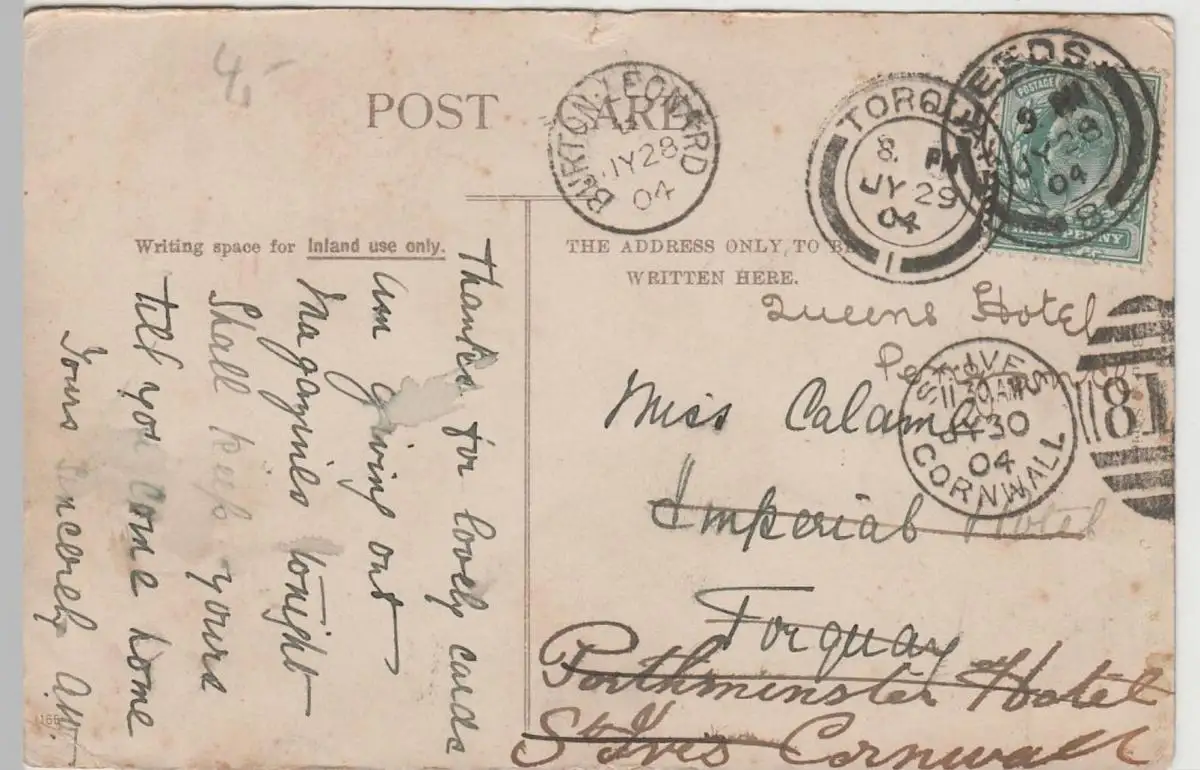 4/-
POST CARD
BURTON-LEONARD
JY 28
04
TORQUAY
8. PM
JY 29
04
1
LEEDS
9 PM
JY 28
04
98
POSTAGE
PENNY
Writing space for Inland use only.
THE ADDRESS ONLY TO BE
WRITTEN HERE.
Thanks for lovely cards
am giving out
Magazines tonight
Shall keep yours
till you come home
Yours sincerely A.W.
Queens Hotel
ST. IVES
11.30AM
JY 30
04
CORNWALL
81
Miss
Imperial Hotel
Torquay
Porthminster Hotel
St Ives Cornwall